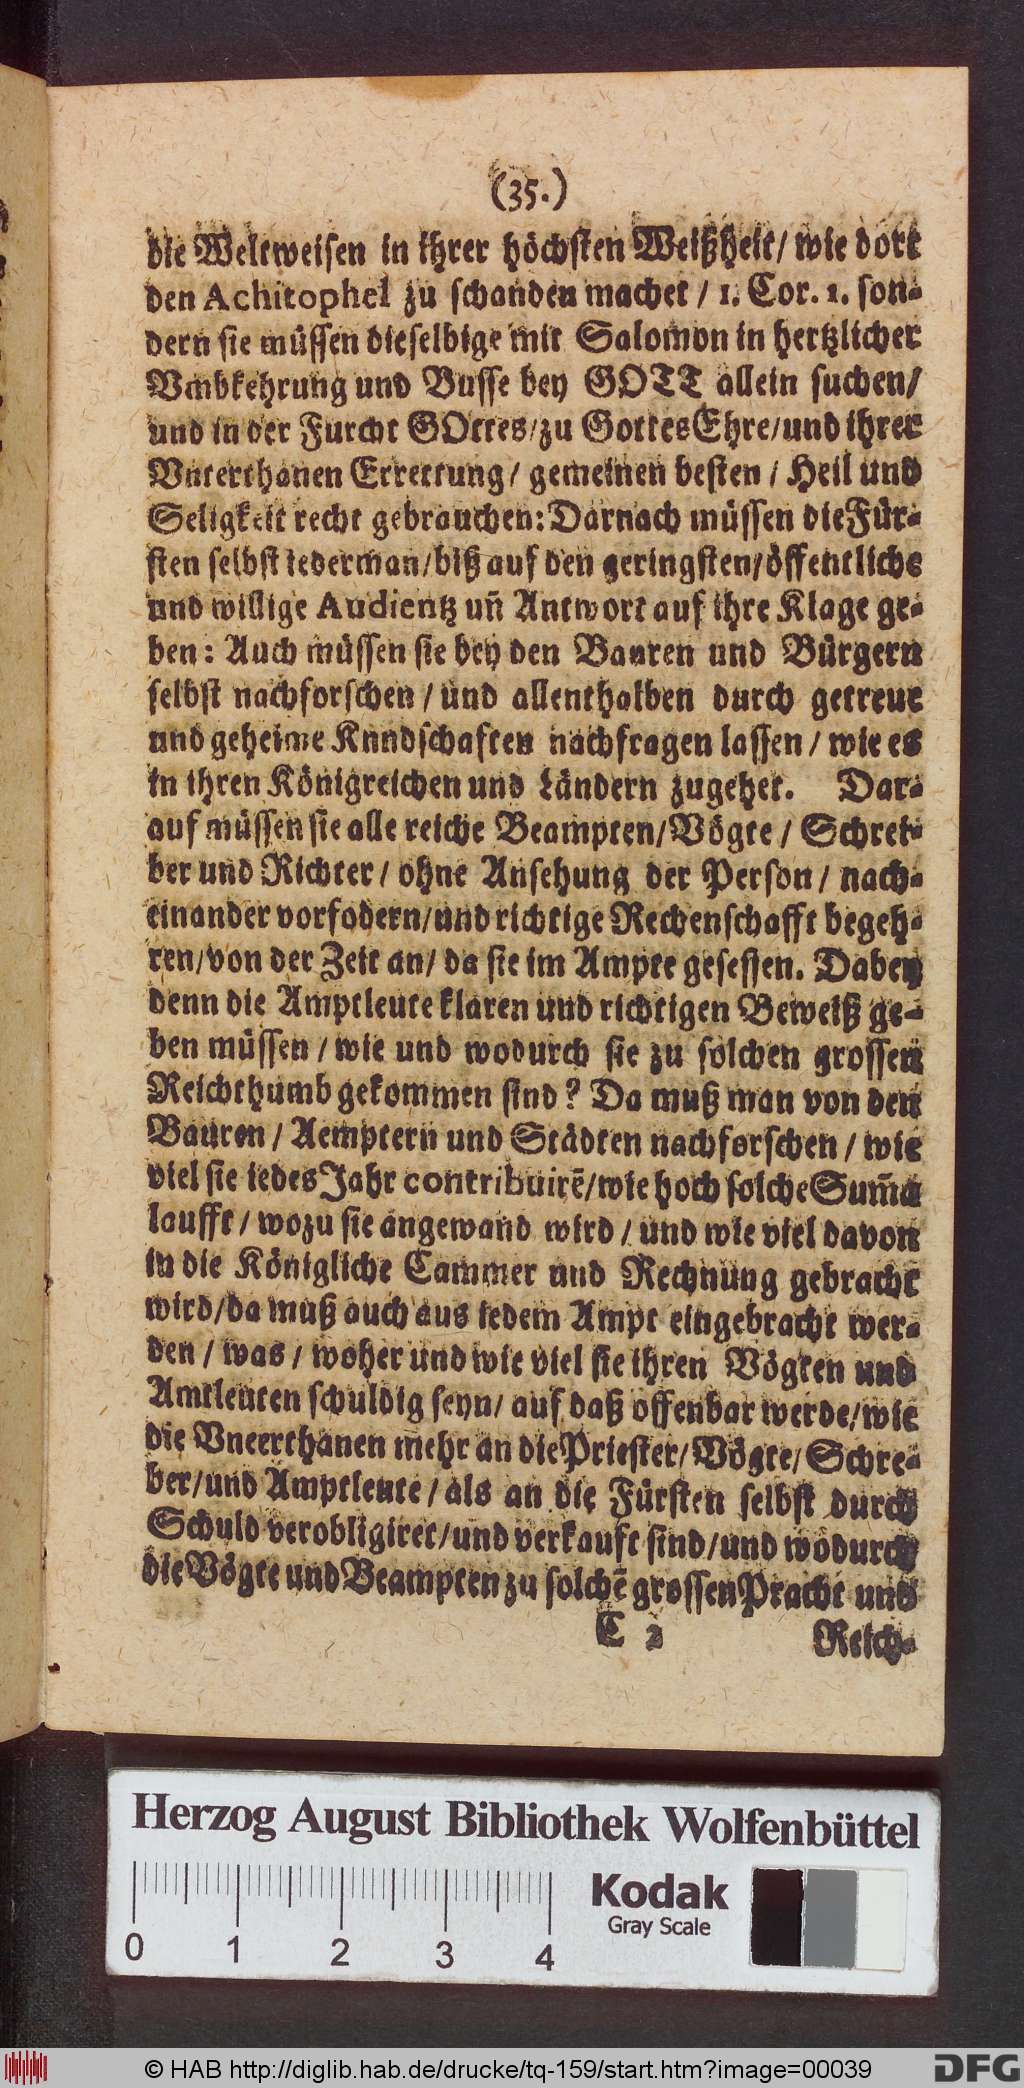 (35.)
die Weltweisen in ihrer höchsten Weißheit/ wie dort
den Achitophel zu schanden machet / 1. Cor. 1. son-
dern sie müssen dieselbige mit Salomon in hertzlicher
Vmbkehrung und Busse bey GOTT allein suchen/
und in der Furcht GOttes/zu Gottes Ehre/und ihrer
Vnterthanen Errettung/ gemeinen besten / Heil und
Seligkeit recht gebrauchen: Darnach müssen die Für-
sten selbst iederman/biß auf den geringsten/öffentliche
und willige Audientz uñ Antwort auf ihre Klage ge-
ben: Auch müssen sie bey den Bauren und Bürgern
selbst nachforschen / und allenthalben durch getreue
und geheime Kundschaften nachfragen lassen / wie es
in ihren Königreichen und Ländern zugehet. Dar-
auf müssen sie alle reiche Beampten/Vögte / Schrei-
ber und Richter / ohne Ansehung der Person / nach-
einander vorfodern/und richtige Rechenschafft begeh-
ren/von der Zeit an/ da sie im Ampte gesessen. Dabey
denn die Amptleute klaren und richtigen Beweiß ge-
ben müssen / wie und wodurch sie zu solchen grossen
Reichthumb gekommen sind? Da muß man von den
Bauren / Aemptern und Städten nachforschen / wie
viel sie iedes Jahr contribuirẽ/wie hoch solche Sum̃a
laufft / wozu sie angewand wird / und wie viel davon
in die Königliche Cammer und Rechnung gebracht
wird/da muß auch aus iedem Ampt eingebracht wer-
den / was / woher und wie viel sie ihren Vögten und
Amtleuten schuldig seyn/ auf daß offenbar werde/wie
die Vneerthanen mehr an die Priester/Vögte/ Schre-
ber/und Amptleute / als an die Fürsten selbst durch
Schuld verobligiret/und verkauft sind/und wodurch
die Vögte und Beampten zu solchẽ grossen Pracht und
C 2 Reich-
Herzog August Bibliothek Wolfenbüttel
Kodak
Gray Scale
0 1 2 3 4
© HAB http://diglib.hab.de/drucke/tq-159/start.htm?image=00039
DFG